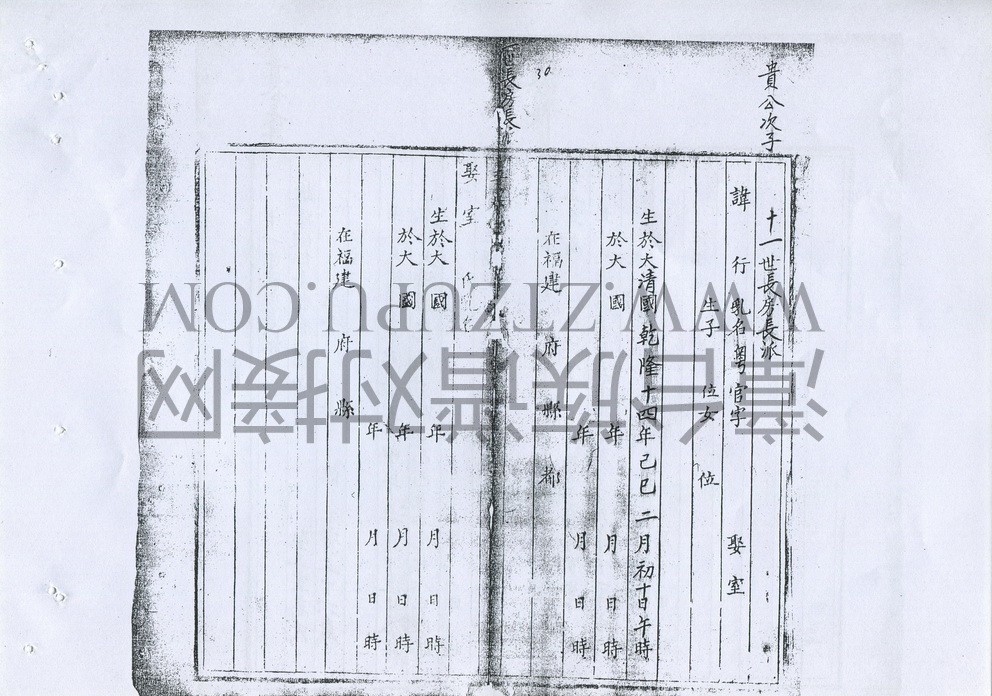 貴公次子
十一世長房長派
諱 行 乳名粤官字 娶室
生子 位女 位
生於大清國乾隆十四年己巳二月初十日午時
於大 國 年 月 日 時
年 月 日 時
在福建 府 縣 都
30
世長房長
娶室 氏
生於大 國 年 月 日 時
於大 國 年 月 日 時
年 月 日 時
在福建 府 縣
WWW.ZTZUPU.COM
漳台族谱对接网